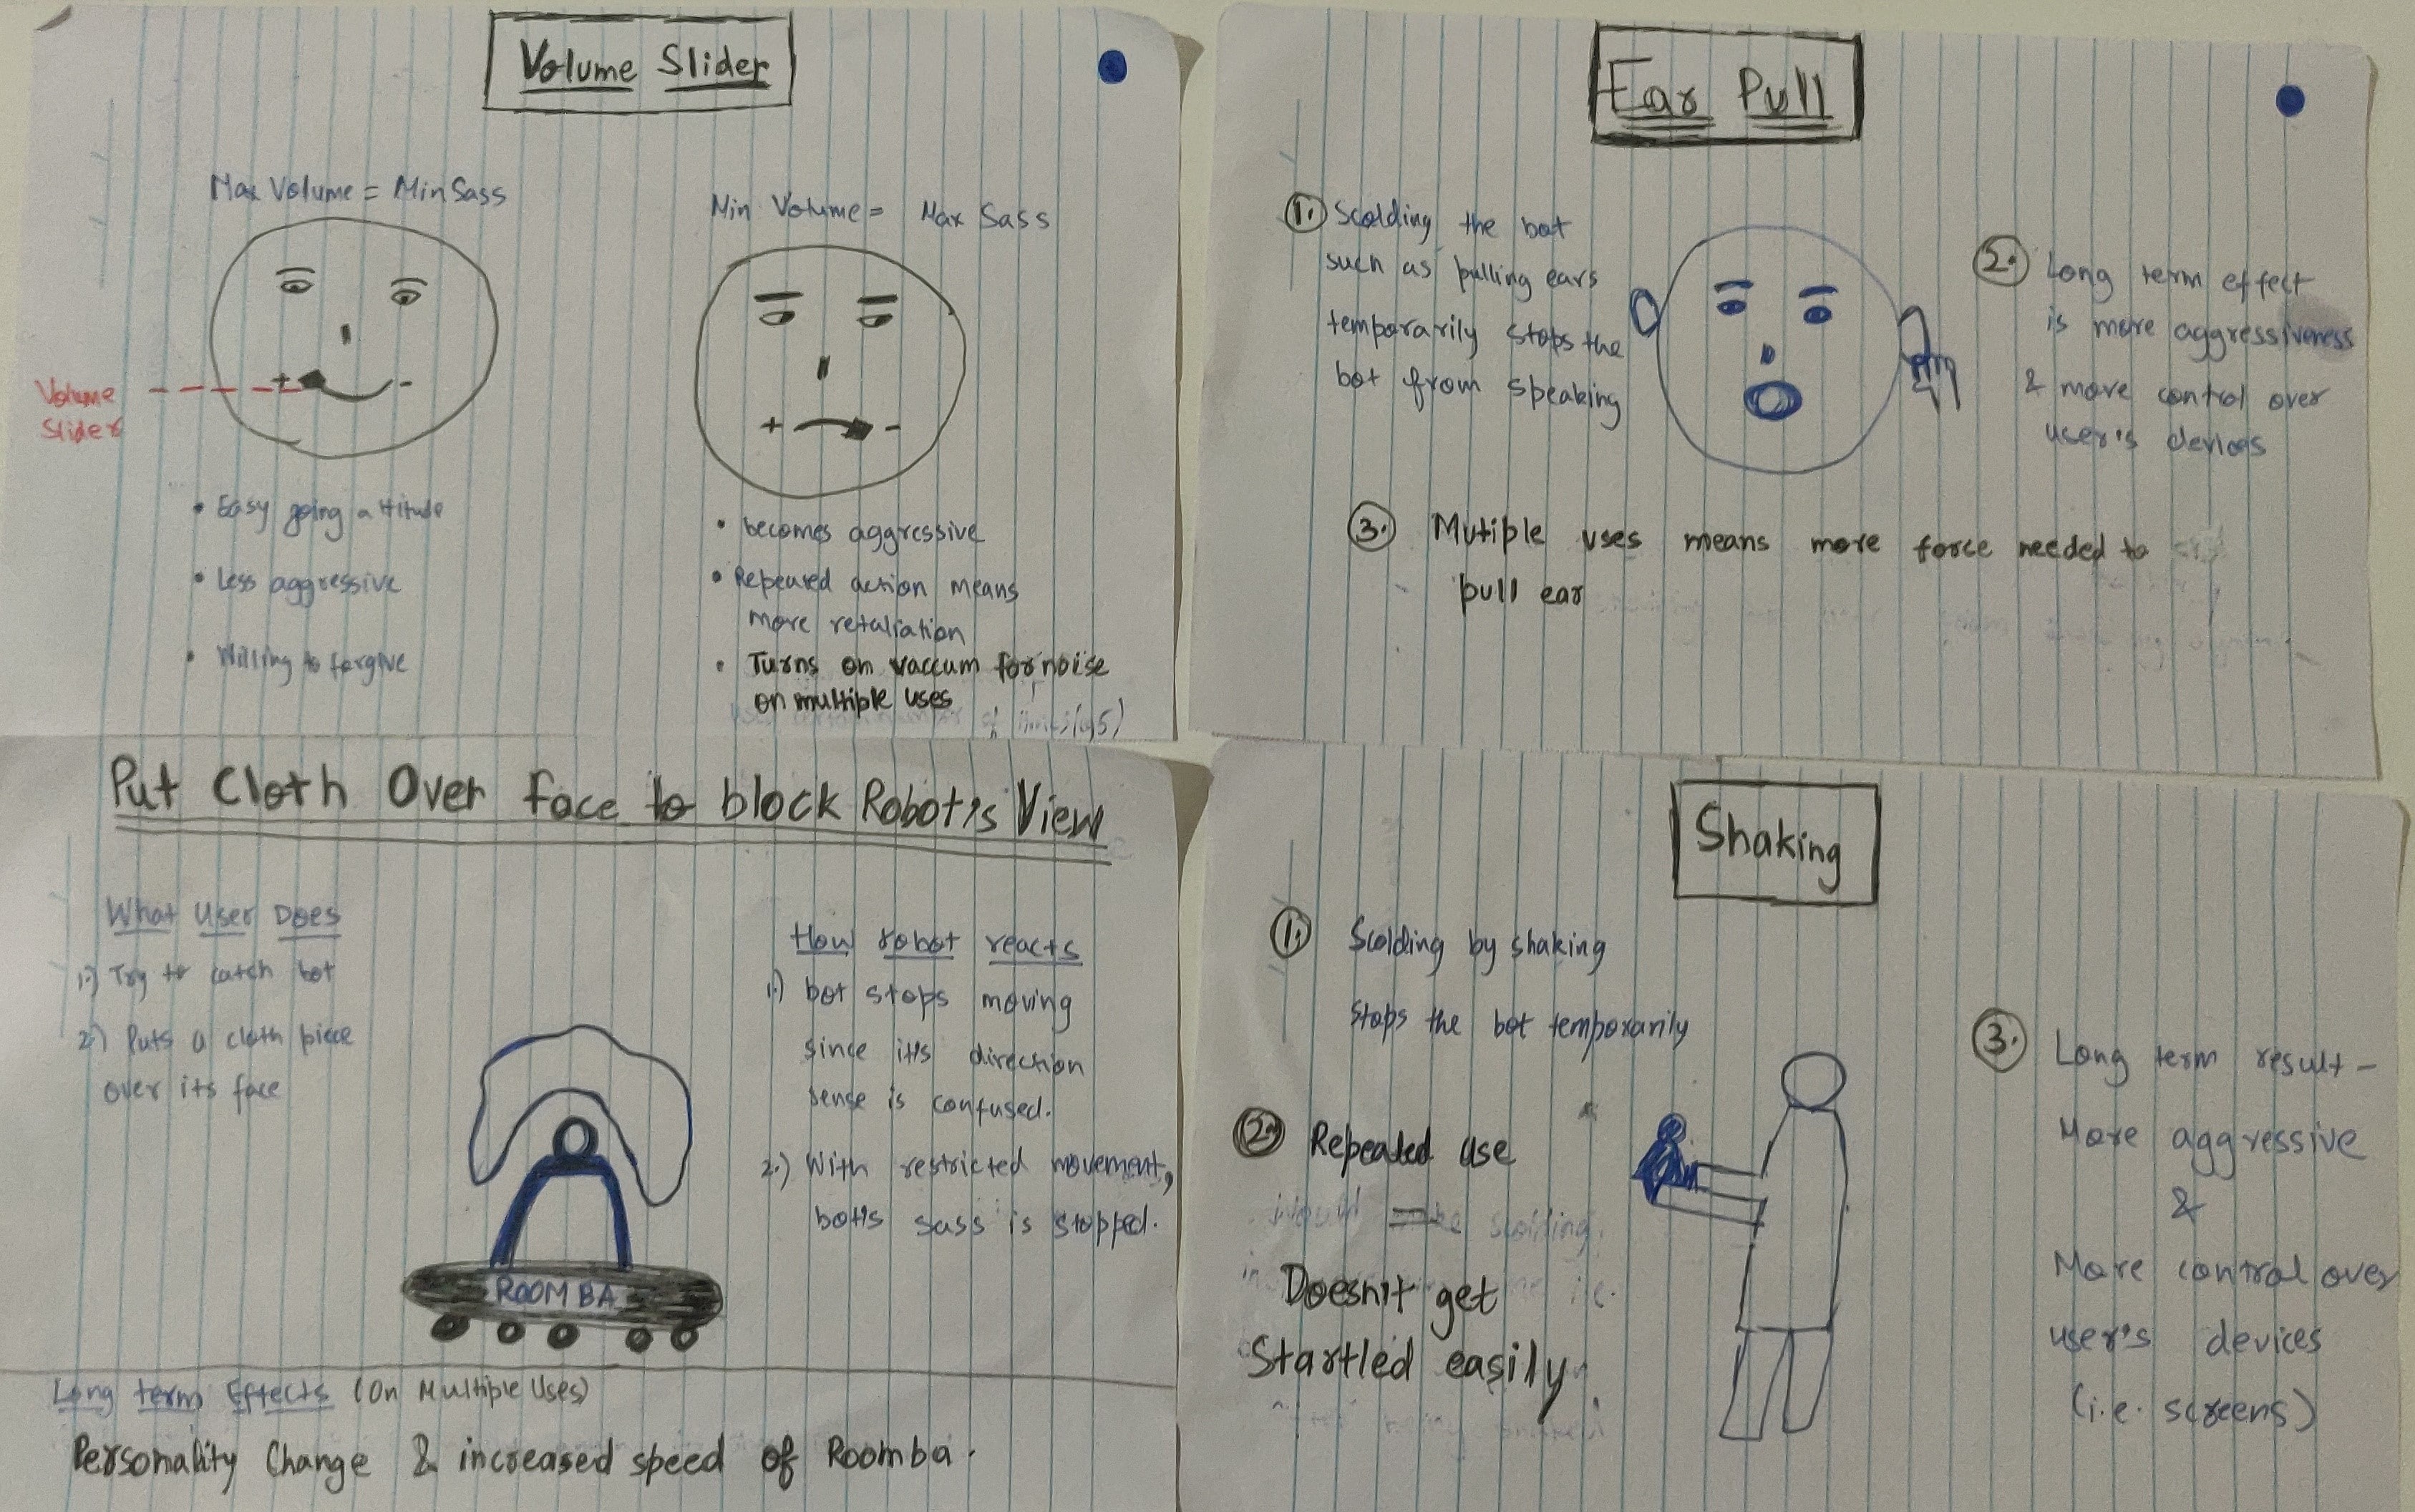 Volume Slider
Max Volume = Min Sass
Min Volume = Max Sass
+ -
Volume
Slider
+ -
• Easy going attitude
• Less aggressive
• Willing to forgive
• becomes aggressive
• Repeated action means
more retaliation
• Turns on vaccum for noise
on multiple uses
Ear Pull
1. Scolding the bot
such as pulling ears
temporarily stops the
bot from speaking
2. Long term effect
is more aggressiveness
& more control over
user's devices
3. Mutiple uses means more force needed to
pull ear
Put Cloth Over face to block Robot's View
What User Does
1.) Try to catch bot
2.) Puts a cloth piece
over its face
How robot reacts
1.) bot stops moving
since it's direction
sense is confused.
2.) With restricted movement,
bot's sass is stopped.
ROOMBA
Long term Effects (On Multiple Uses)
Personality Change & increased speed of Roomba.
Shaking
1. Scolding by shaking
stops the bot temporarily
2. Repeated use
Doesn't get
Startled easily.
3. Long term result -
More aggressive
&
More control over
user's devices
(i.e. screens)